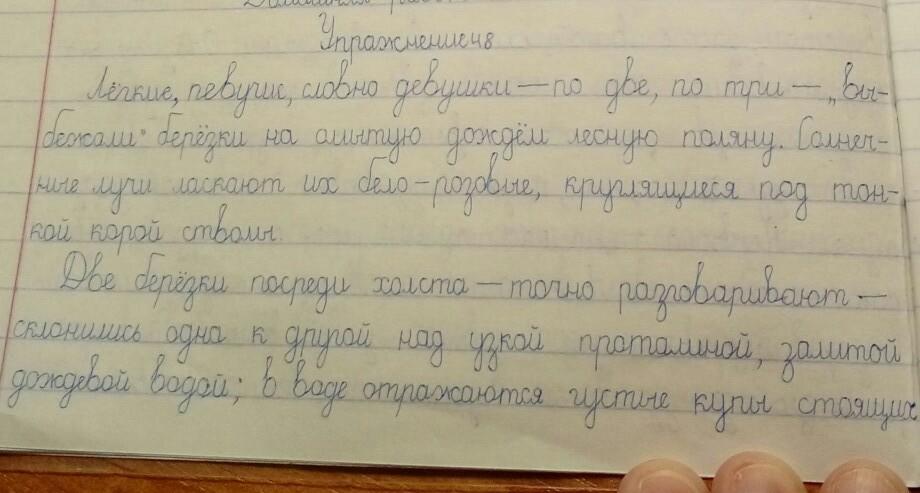 Домашняя работа
Упражнение 48
Лёгкие, певучие, словно девушки — по две, по три — „вы-
бежали" берёзки на омытую дождём лесную поляну. Солнеч-
ные лучи ласкают их бело-розовые, круглящиеся под тон-
кой корой стволы.
Две берёзки посреди холста — точно разговаривают —
склонились одна к другой над узкой проталиной, залитой
дождевой водой; в воде отражаются густые купы стоящих